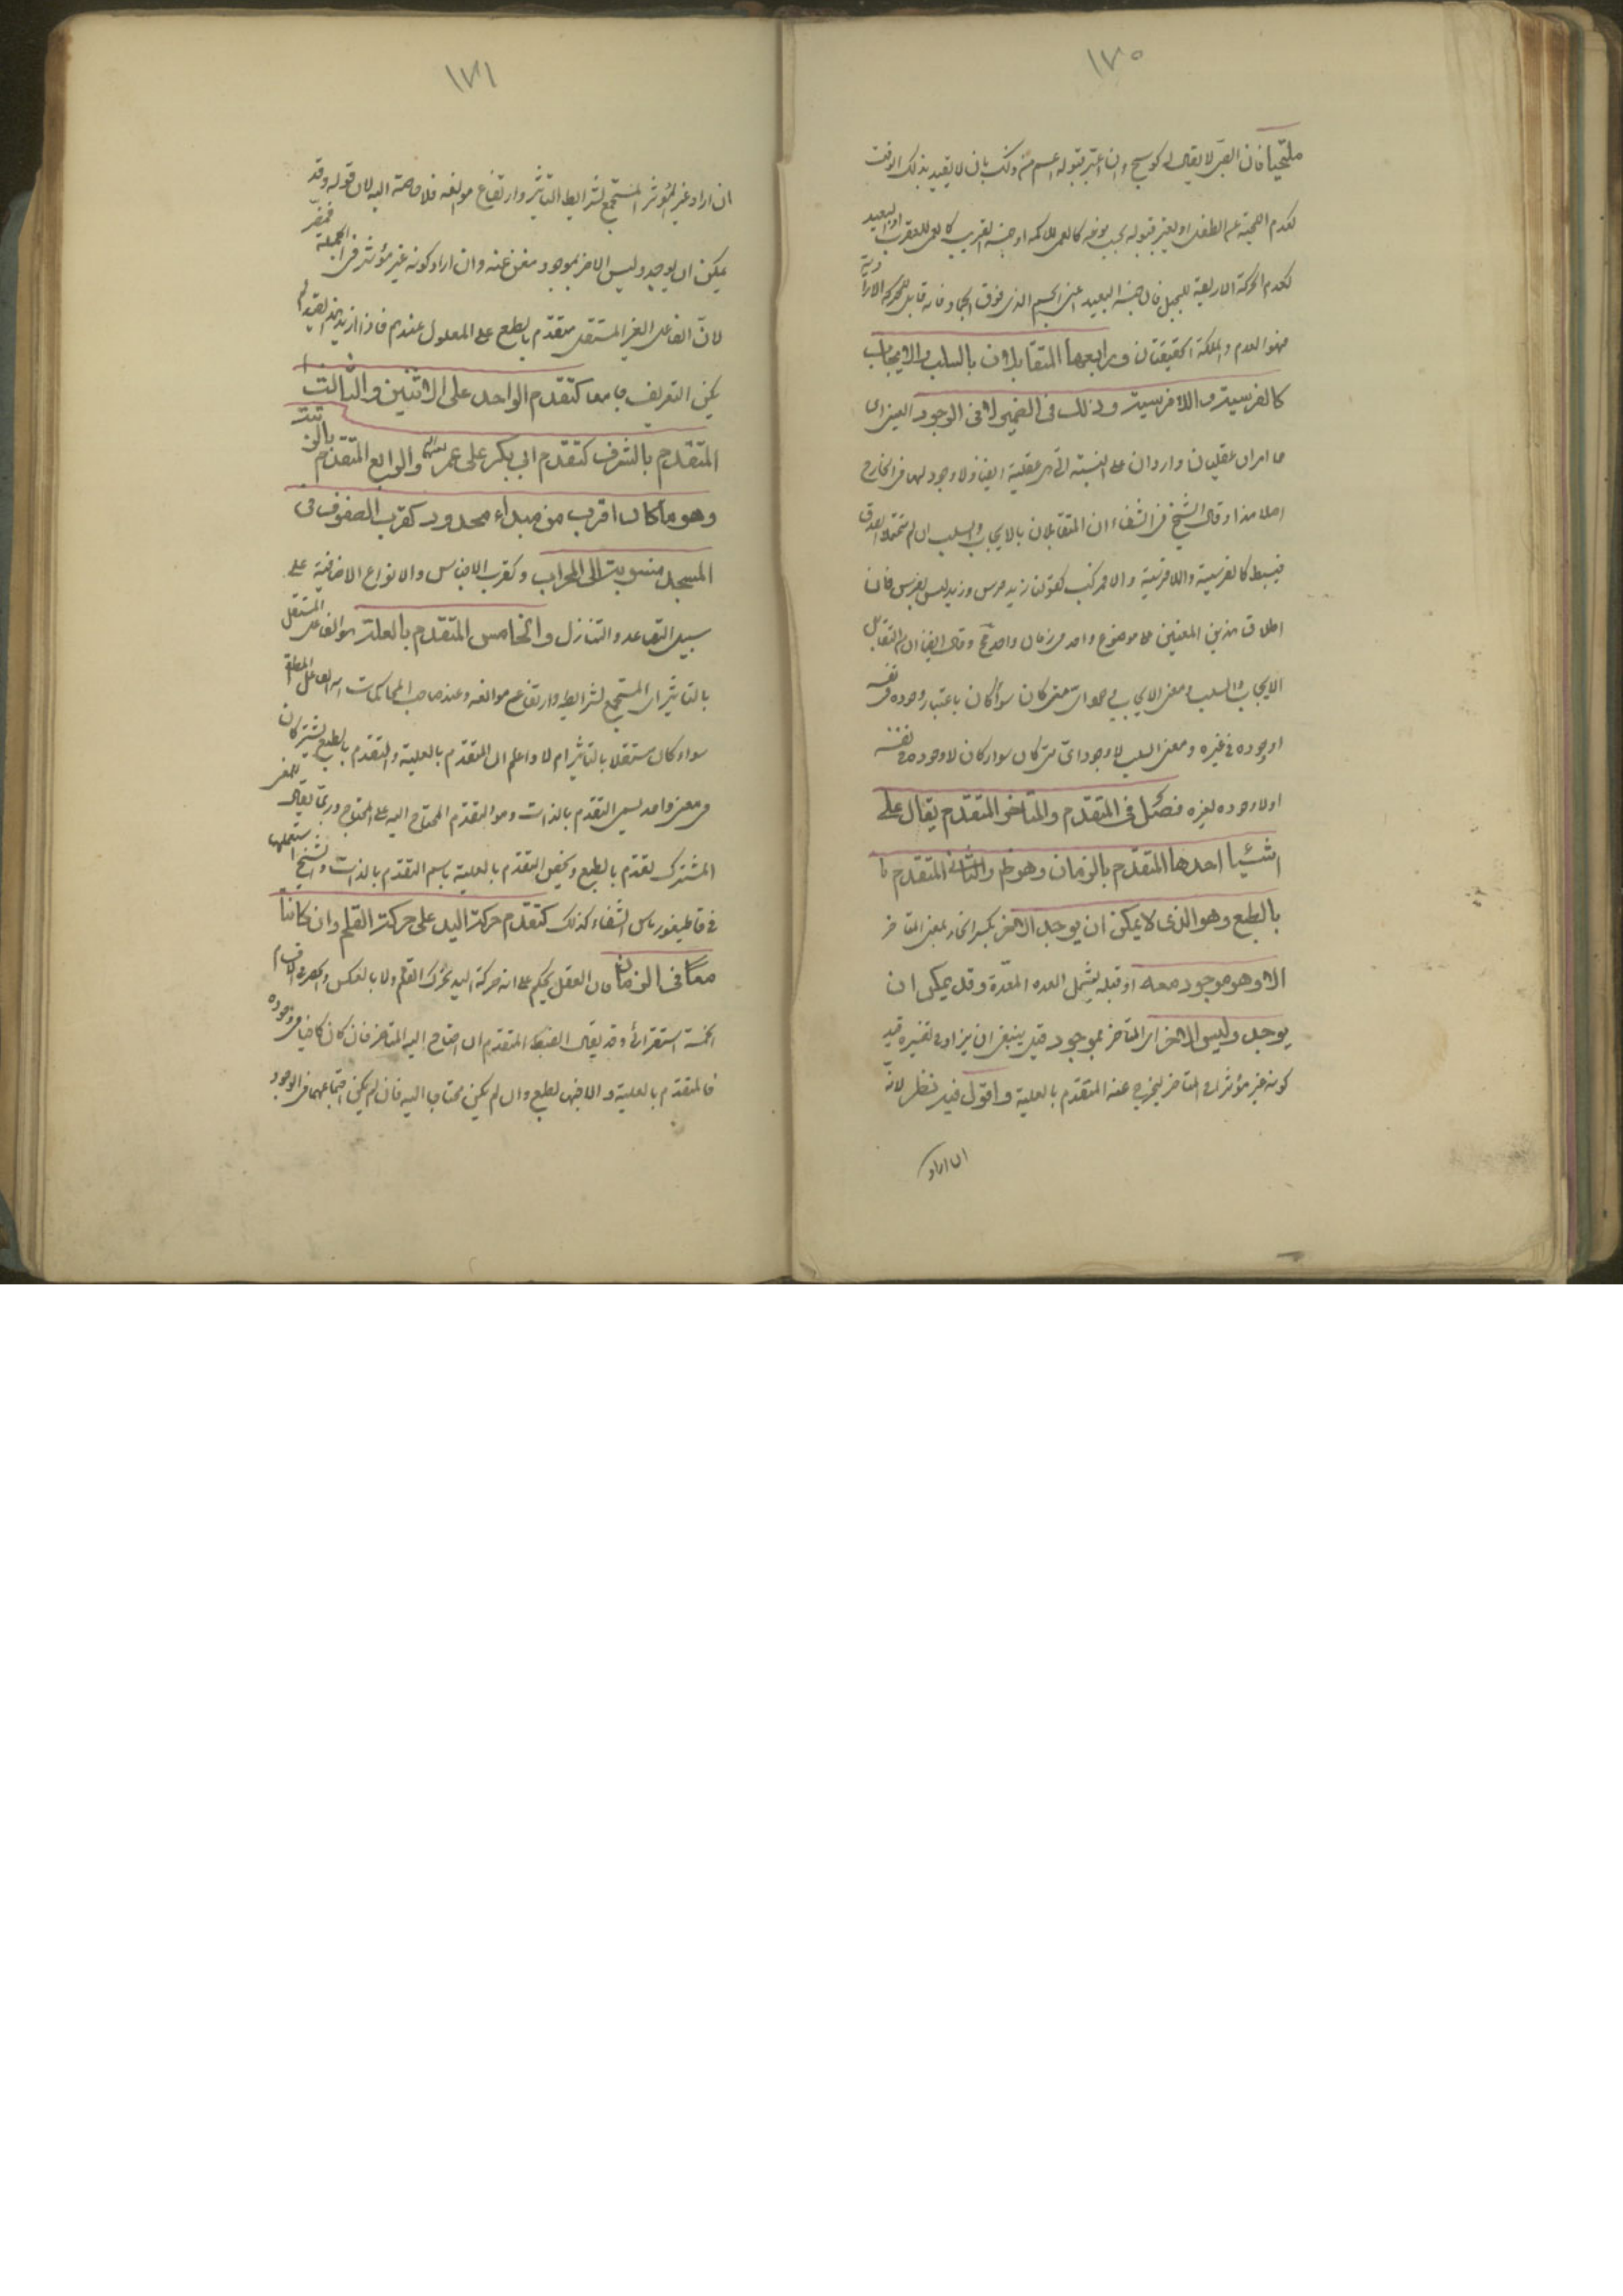 ١٧٠
ملتحيا فان الصبي لا يقال له كوسج وان اعتبر قبوله اعم من ذلك بان لا يقيد بذلك الوقت
كعدم اللحية عن الطفل او يعتبر قبوله بحسب نوعه كالعمى للاكمه او جنسه القريب كالعمى للعقرب او البعيد
كعدم الحركة الارادية للجبل فان جنسه البعيد اعنى الجسم الذى فوق الجماد فانه قابل للحركة الارادية
فهو العدم والملكة الحقيقيتان ورابعها المتقابلان بالسلب والايجاب
كالفرسية واللافرسية وذلك فى الضمير لا فى الوجود العينى اى
هما امران عقليان واردان على النسبة التى هى عقلية ايضا ولا وجود لهما فى الخارج
اصلا هذا وقال الشيخ فى الشفاء ان المتقابلان بالايجاب والسلب ان لم يحتمل الصدق
فبسيط كالفرسية واللافرسية والا فمركب كقولنا زيد فرس وزيد ليس بفرس فان
اطلاق هذين المعنيين على موضوع واحد فى زمان واحد مح وقال ايضا ان التقابل
الايجاب والسلب ومعنى الايجاب وجود اى معنى كان سواء كان باعتبار وجوده فى نفسه
او وجوده فى غيره ومعنى السلب لا وجود اى معنى كان سواء كان لا وجوده فى نفسه
او لا وجوده لغيره فصل فى المتقدم والمتاخر المتقدم يقال على
اشيا احدها المتقدم بالزمان وهو ظ والثانى المتقدم با
بالطبع وهو الذى لا يمكن ان يوجد الاخر بكسر الخاء بمعنى المتاخر
الا وهو موجود معه او قبله يشمل العدة المعدة وقد يمكن ان
يوجد وليس الاخر اى المتاخر بموجود قيل ينبغى ان يزاد فى تفسيره قيد
كونه غير مؤثر فى المتاخر ليخرج عنه المتقدم بالعلية واقول فيه نظر لانه
ان اراد
١٧١
ان اراد غير المؤثر المستجمع لشرايط التاثير وارتفاع موانعه فلا حاجة اليه لان قوله وقد
يمكن ان يوجد وليس الاخر بموجود مغن عنه وان اراد كونه غير مؤثر فى الجملة فمضر
لان الفاعل الغير المستقل متقدم بالطبع على المعلول عندهم فاذا زيد هذا القيد لم
يكن التعريف جامعا كتقدم الواحد على الاثنين والثالث
المتقدم بالشرف كتقدم ابى بكر على عمر والرابع المتقدم بالرتبة
وهو ما كان اقرب من مبداء محدود كقرب الصفوف فى
المسجد منسوبة الى المحراب وكقرب الاجناس والانواع الاضافية على
سبيل التصاعد والتنازل والخامس المتقدم بالعلة هو الفاعل المستقل
بالتاثير اى المستجمع لشرايطه وارتفاع موانعه وعند صاحب المحاكمات انه الفاعل المطلق
سواء كان مستقلا بالتاثير ام لا واعلم ان التقدم بالعلية والتقدم بالطبع يشتركان
فى معنى واحد يسمى التقدم بالذات وهو التقدم المحتاج اليه على المحتاج وربما يقال للمعنى
المشترك تقدم بالطبع ويخص التقدم بالعلية باسم التقدم بالذات والشيخ استعملها
فى قاطيغورياس الشفاء كذلك كتقدم حركة اليد على حركة القلم وان كانتا
معا فى الزمان فان العقل يحكم على انه حركة اليد تحرك القلم ولا بالعكس والحصر فى الاقسام
الخمسة استقرائى وقد يقال الضبط المتقدم ان احتاج اليه المتاخر فان كان كافيا فى وجوده
فالمتقدم بالعلية والا فبالطبع وان لم يكن محتاجا اليه فان لم يكن اجتماعهما فى الوجود